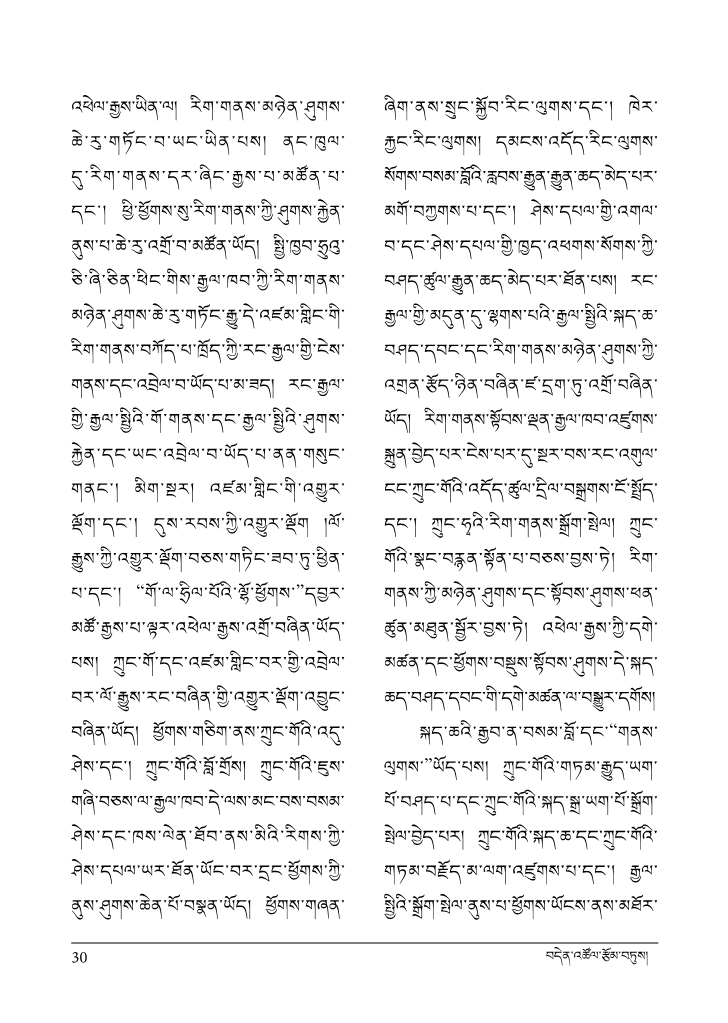 འཕེལ་རྒྱས་ཡིན་ལ། རིག་གནས་མཉེན་ཤུགས་
ཆེ་རུ་གཏོང་བ་ཡང་ཡིན་པས། ནང་ཁུལ་
དུ་རིག་གནས་དར་ཞིང་རྒྱས་པ་མཚོན་པ་
དང་། ཕྱི་ཕྱོགས་སུ་རིག་གནས་ཀྱི་ཤུགས་རྐྱེན་
ནུས་པ་ཆེ་རུ་འགྲོ་བ་མཚོན་ཡོད། སྤྱི་ཁྱབ་ཧྲུའུ་
ཅི་ཞི་ཅིན་ཕིང་གིས་རྒྱལ་ཁབ་ཀྱི་རིག་གནས་
མཉེན་ཤུགས་ཆེ་རུ་གཏོང་རྒྱུ་དེ་འཛམ་གླིང་གི་
རིག་གནས་བཀོད་པ་ཁྲོད་ཀྱི་རང་རྒྱལ་གྱི་ངེས་
གནས་དང་འབྲེལ་བ་ཡོད་པ་མ་ཟད། རང་རྒྱལ་
གྱི་རྒྱལ་སྤྱིའི་གོ་གནས་དང་རྒྱལ་སྤྱིའི་ཤུགས་
རྐྱེན་དང་ཡང་འབྲེལ་བ་ཡོད་པ་ནན་གསུང་
གནང་། མིག་སྔར། འཛམ་གླིང་གི་འགྱུར་
ལྡོག་དང་། དུས་རབས་ཀྱི་འགྱུར་ལྡོག །ལོ་
རྒྱུས་ཀྱི་འགྱུར་ལྡོག་བཅས་གཏིང་ཟབ་ཏུ་ཕྱིན་
པ་དང་། “གོ་ལ་ཧྲིལ་པོའི་ལྷོ་ཕྱོགས་”དབྱར་
མཚོ་རྒྱས་པ་ལྟར་འཕེལ་རྒྱས་འགྲོ་བཞིན་ཡོད་
པས། ཀྲུང་གོ་དང་འཛམ་གླིང་བར་གྱི་འབྲེལ་
བར་ལོ་རྒྱུས་རང་བཞིན་གྱི་འགྱུར་ལྡོག་འབྱུང་
བཞིན་ཡོད། ཕྱོགས་གཅིག་ནས་ཀྲུང་གོའི་འདུ་
ཤེས་དང་། ཀྲུང་གོའི་བློ་གྲོས། ཀྲུང་གོའི་ཇུས་
གཞི་བཅས་ལ་རྒྱལ་ཁབ་དེ་ལས་མང་བས་བསམ་
ཤེས་དང་ཁས་ལེན་ཐོབ་ནས་མིའི་རིགས་ཀྱི་
ཤེས་དཔལ་ཡར་ཐོན་ཡོང་བར་དྲང་ཕྱོགས་ཀྱི་
ནུས་ཤུགས་ཆེན་པོ་བསྐྲུན་ཡོད། ཕྱོགས་གཞན་
ཞིག་ནས་སྲུང་སྐྱོབ་རིང་ལུགས་དང་། ཁེར་
རྐྱང་རིང་ལུགས། དམངས་འདོད་རིང་ལུགས་
སོགས་བསམ་བློའི་རླབས་རྒྱུན་རྒྱུན་ཆད་མེད་པར་
མགོ་བཀྱགས་པ་དང་། ཤེས་དཔལ་གྱི་འགལ་
བ་དང་ཤེས་དཔལ་གྱི་ཁྱད་འཕགས་སོགས་ཀྱི་
བཤད་ཚུལ་རྒྱུན་ཆད་མེད་པར་ཐོན་པས། རང་
རྒྱལ་གྱི་མདུན་དུ་ལྷགས་པའི་རྒྱལ་སྤྱིའི་སྐད་ཆ་
བཤད་དབང་དང་རིག་གནས་མཉེན་ཤུགས་ཀྱི་
འགྲན་རྩོད་ཉིན་བཞིན་ཛ་དྲག་ཏུ་འགྲོ་བཞིན་
ཡོད། རིག་གནས་སྟོབས་ལྡན་རྒྱལ་ཁབ་འཛུགས་
སྐྲུན་བྱེད་པར་ངེས་པར་དུ་སྔར་བས་རང་འགུལ་
ངང་ཀྲུང་གོའི་འདོད་ཚུལ་དྲིལ་བསྒྲགས་ངོ་སྤྲོད་
དང་། ཀྲུང་ཧྭའི་རིག་གནས་སྒྲོག་སྤེལ། ཀྲུང་
གོའི་སྣང་བརྙན་སྟོན་པ་བཅས་བྱས་ཏེ། རིག་
གནས་ཀྱི་མཉེན་ཤུགས་དང་སྟོབས་ཤུགས་ཕན་
ཚུན་མཐུན་སྦྱོར་བྱས་ཏེ། འཕེལ་རྒྱས་ཀྱི་དགེ་
མཚན་དང་ཕྱོགས་བསྡུས་སྟོབས་ཤུགས་དེ་སྐད་
ཆད་བཤད་དབང་གི་དགེ་མཚན་ལ་བསྒྱུར་དགོས།
སྐད་ཆའི་རྒྱབ་ན་བསམ་བློ་དང་“གནས་
ལུགས་”ཡོད་པས། ཀྲུང་གོའི་གཏམ་རྒྱུད་ཡག་
པོ་བཤད་པ་དང་ཀྲུང་གོའི་སྐད་སྒྲ་ཡག་པོ་སྒྲོག་
སྤེལ་བྱེད་པར། ཀྲུང་གོའི་སྐད་ཆ་དང་ཀྲུང་གོའི་
གཏམ་བརྗོད་མ་ལག་འཛུགས་པ་དང་། རྒྱལ་
སྤྱིའི་སྒྲོག་སྤེལ་ནུས་པ་ཕྱོགས་ཡོངས་ནས་མཐོར་
30
བདེན་འཚོལ་རྩོམ་བཏུས།